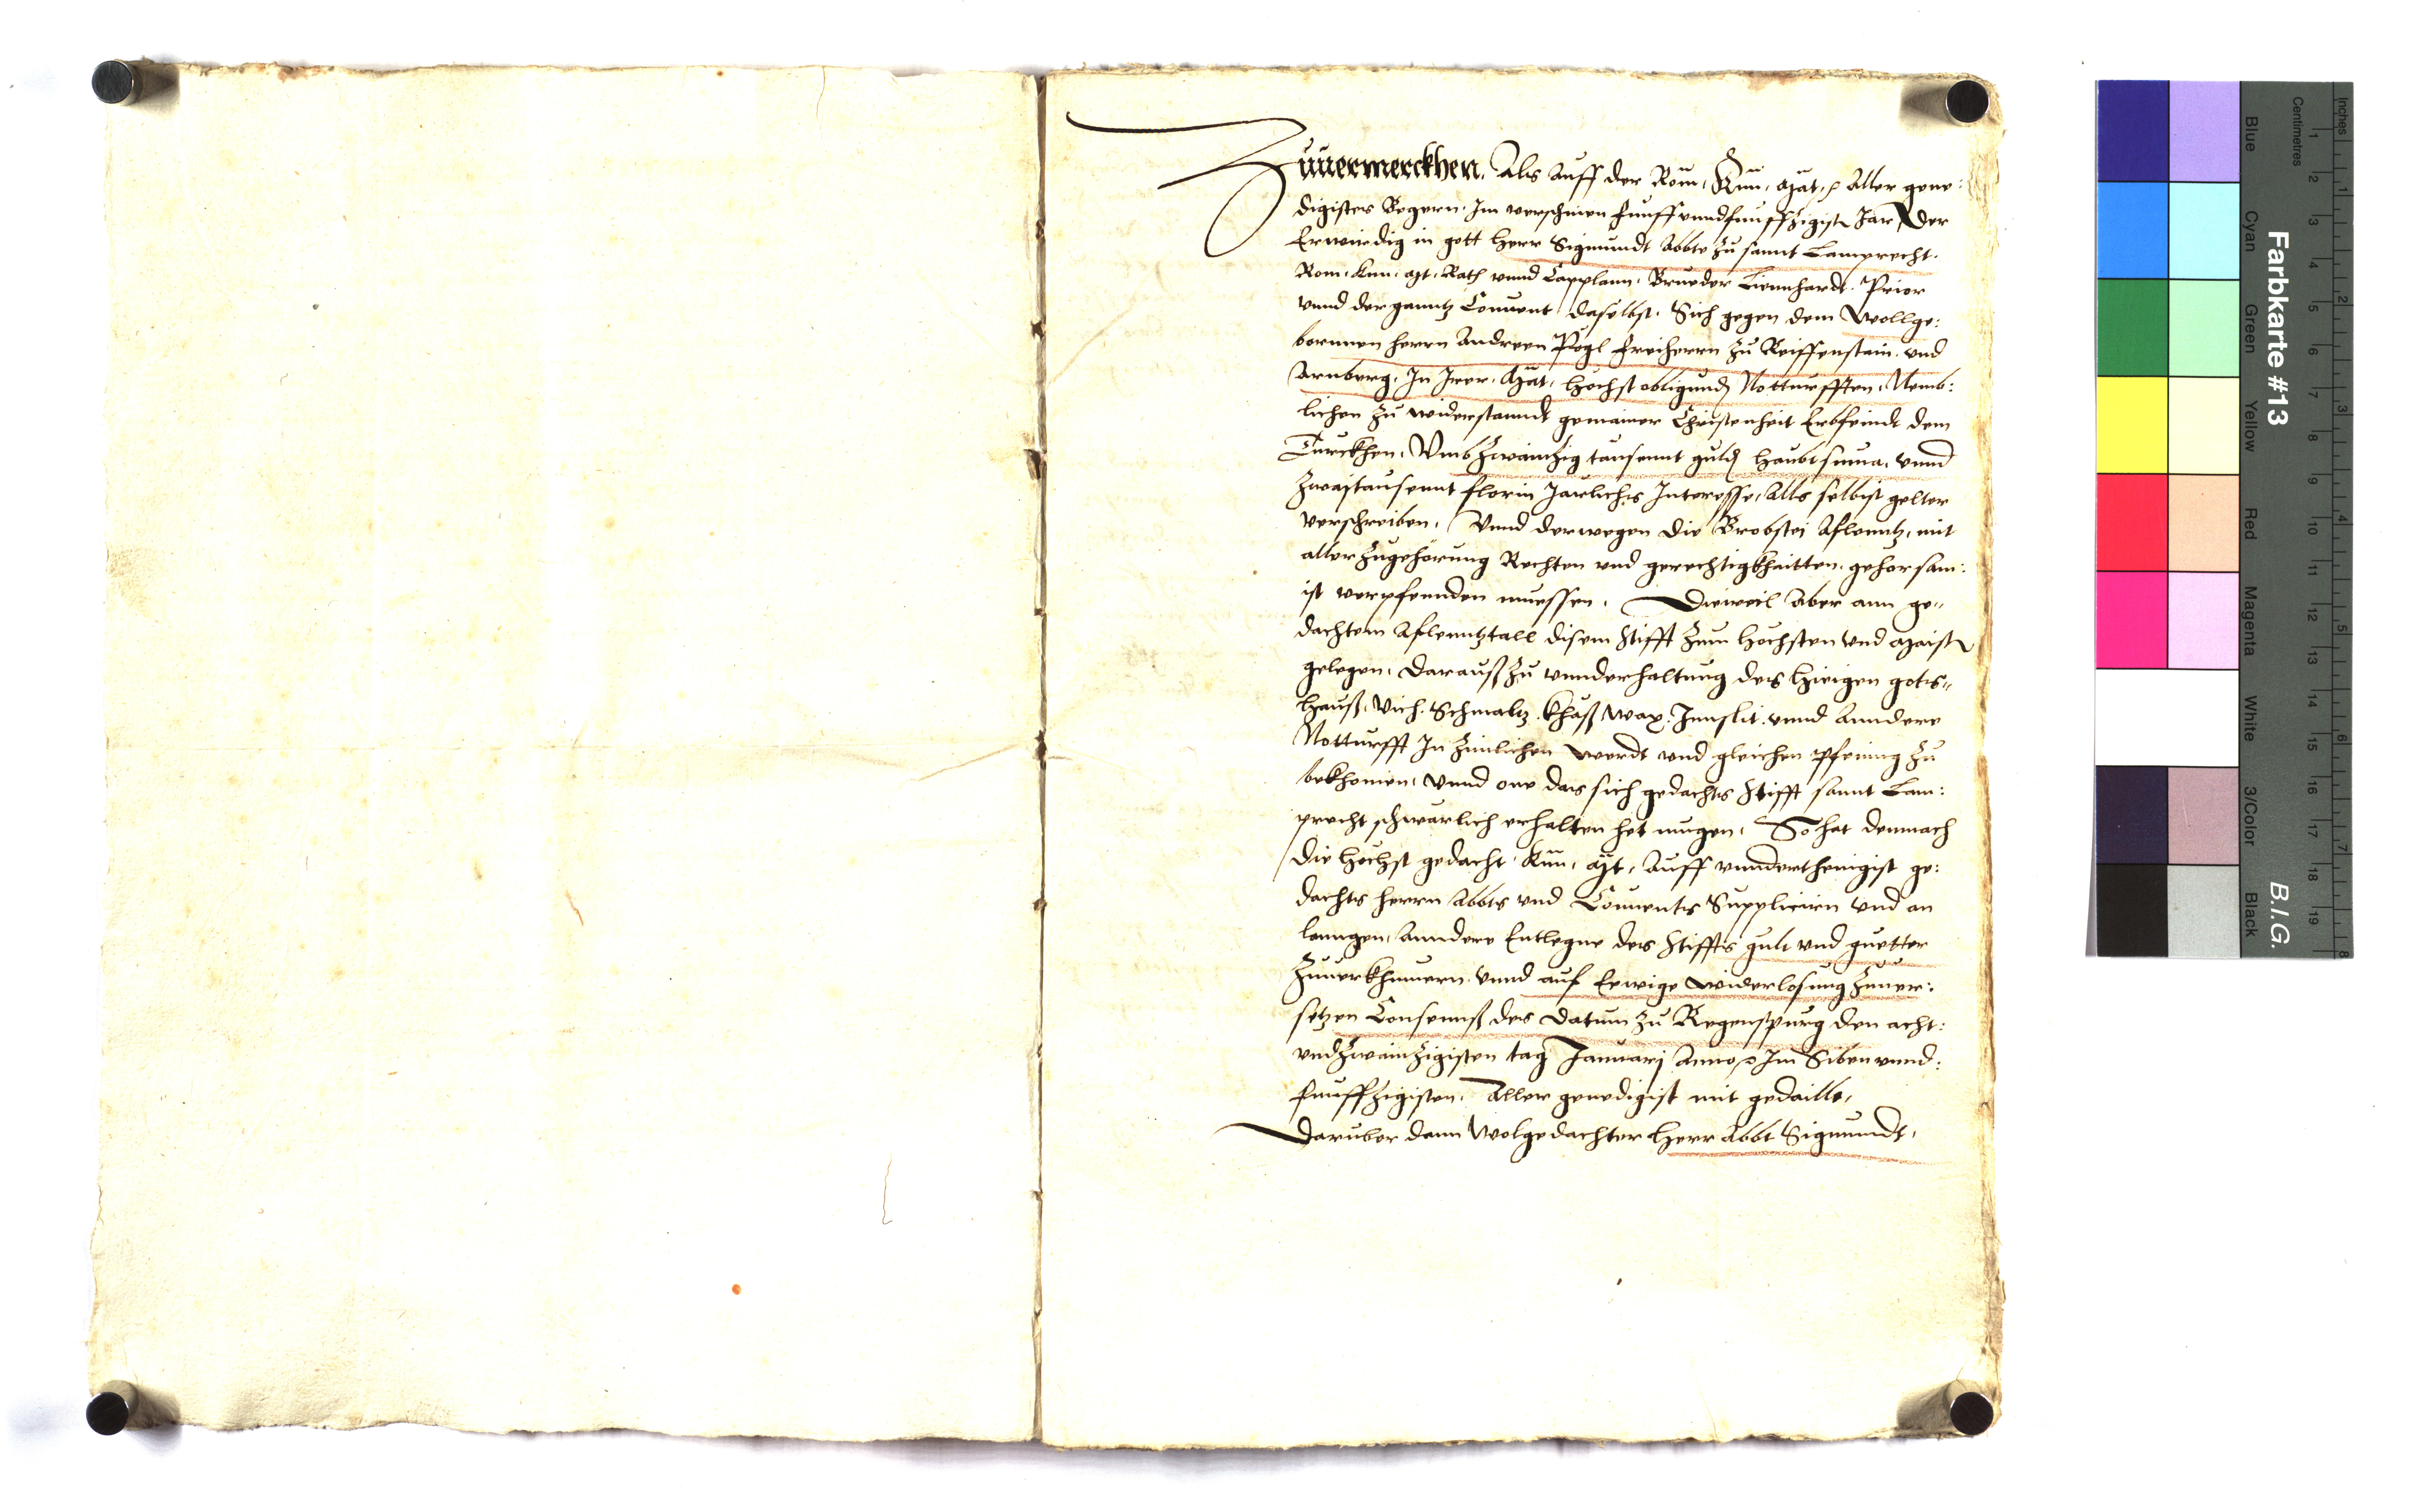 Zuuermerckhen. Als Auff der Röm. Kün. Mät. Aller gene:
digistes Begern. Im verschinen funff vnndfunffzigist Jar Der
Erwirdig in gott herr Sigmundt Abbte zu sannt Lamprecht.
Rom. Kün. Mt. Rath vnnd Capplann. Brueder Liennhardt. Prior
vnnd der ganntz Conuent daselbst. Sich gegen dem Wollge:
bornnen herrn Andreen Pögl freiherrn zu Reiffenstain. vnd
Arnberg. In Irer. Mät. höchst obligundn Notturfften. Nemb:
lichen zu widerstanndt gemainer Christenheit Erbfeindt dem
Türckhen. Vmb zwainzig tausennt guldn haubtsuma. vnnd
zwaitausennt florin Järlichs Interesse. Alls selbist gelter
verschreiben. Vnnd derwegen die Brobstei Aflenntz. mit
aller zugehörung Rechten vnd gerechtigkhaitten. gehorsam:
ist verpfennden muessen. Dieweil Aber ann ge"
dachtem Aflenntztall disem Stifft zum höchsten vnd maistn
gelegen. Darauß zu vnnderhaltung des hieigen gots"
hauß. Vich. Schmaltz. khäß wax. Innslit. vnnd Anndere
Notturfft In zimlichen werdt vnd gleichen Pfening zu
bekhomen. Vnnd one das sich gedachts Stifft sannt Lam:
precht schwärlich erhalten het mugen. So hat demnach
die höchst gedacht. Kün. Mt. Auff vnnderthenigist ge:
dachts herrn Abbts vnd Conuents Supplicirn vnd an
lanngen. Anndere Entlegne des Stiffts gult vnd guetter
Zuuerkhauern. vnnd auf Eewige widerlosung Zuuer:
setzen Consennß des Datum zu Regenspurg den acht:
vndzwainzigisten tag Januarj Anno Im Sibenvnnd:
funffzigisten. Aller genedigist mit gedaillt.
Daruber dann Wolgedachter Herr Abbt Sigmundt.
Farbkarte #13
B.I.G.
Blue Cyan Green Yellow Red Magenta White 3/Color Black
Centimetres 1 2 3 4 5 6 7 8 9 10 11 12 13 14 15 16 17 18 19
Inches 1 2 3 4 5 6 7 8